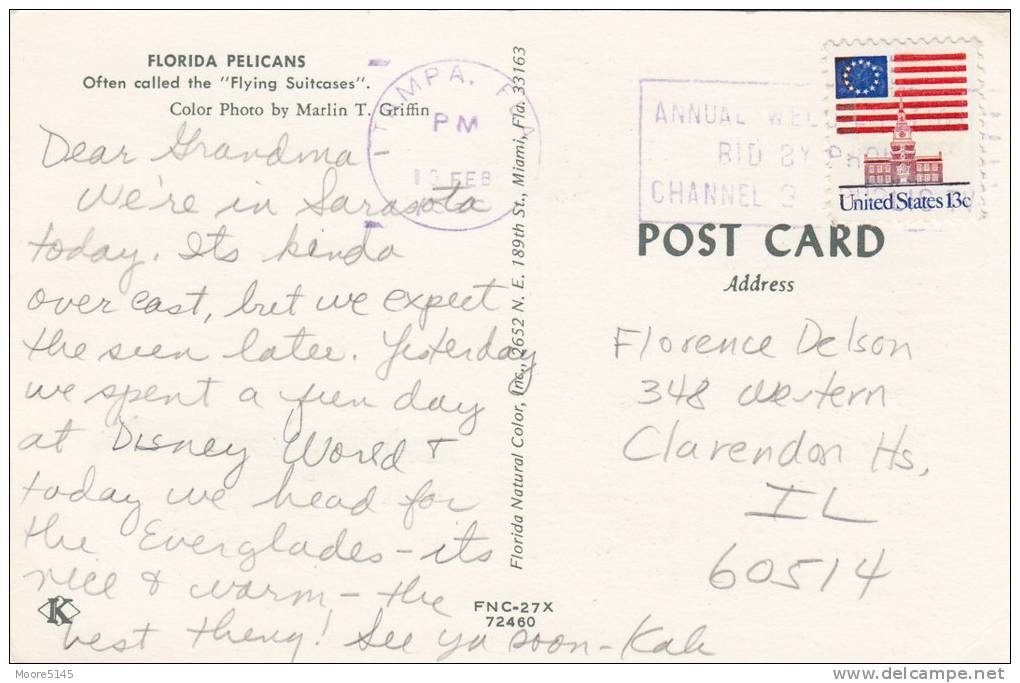 FLORIDA PELICANS
Often called the "Flying Suitcases".
Color Photo by Marlin T. Griffin
Dear Grandma -
We're in Sarasota
today. Its kinda
over cast, but we expect
the sun later. Yesterday
we spent a fun day
at Disney World &
today we head for
the Everglades - its
nice & warm - the
best thing! See ya soon -
K
FNC-27X
72460
Florida Natural Color, Inc., 2652 N. E. 189th St., Miami, Fla. 33163
TAMPA, FLA
PM
FEB
ANNUAL
BID BY
CHANNEL 3
United States 13c
POST CARD
Address
Florence Delson
348 Western
Clarendon Hs,
IL
60514
Moore5145
delcampe.net